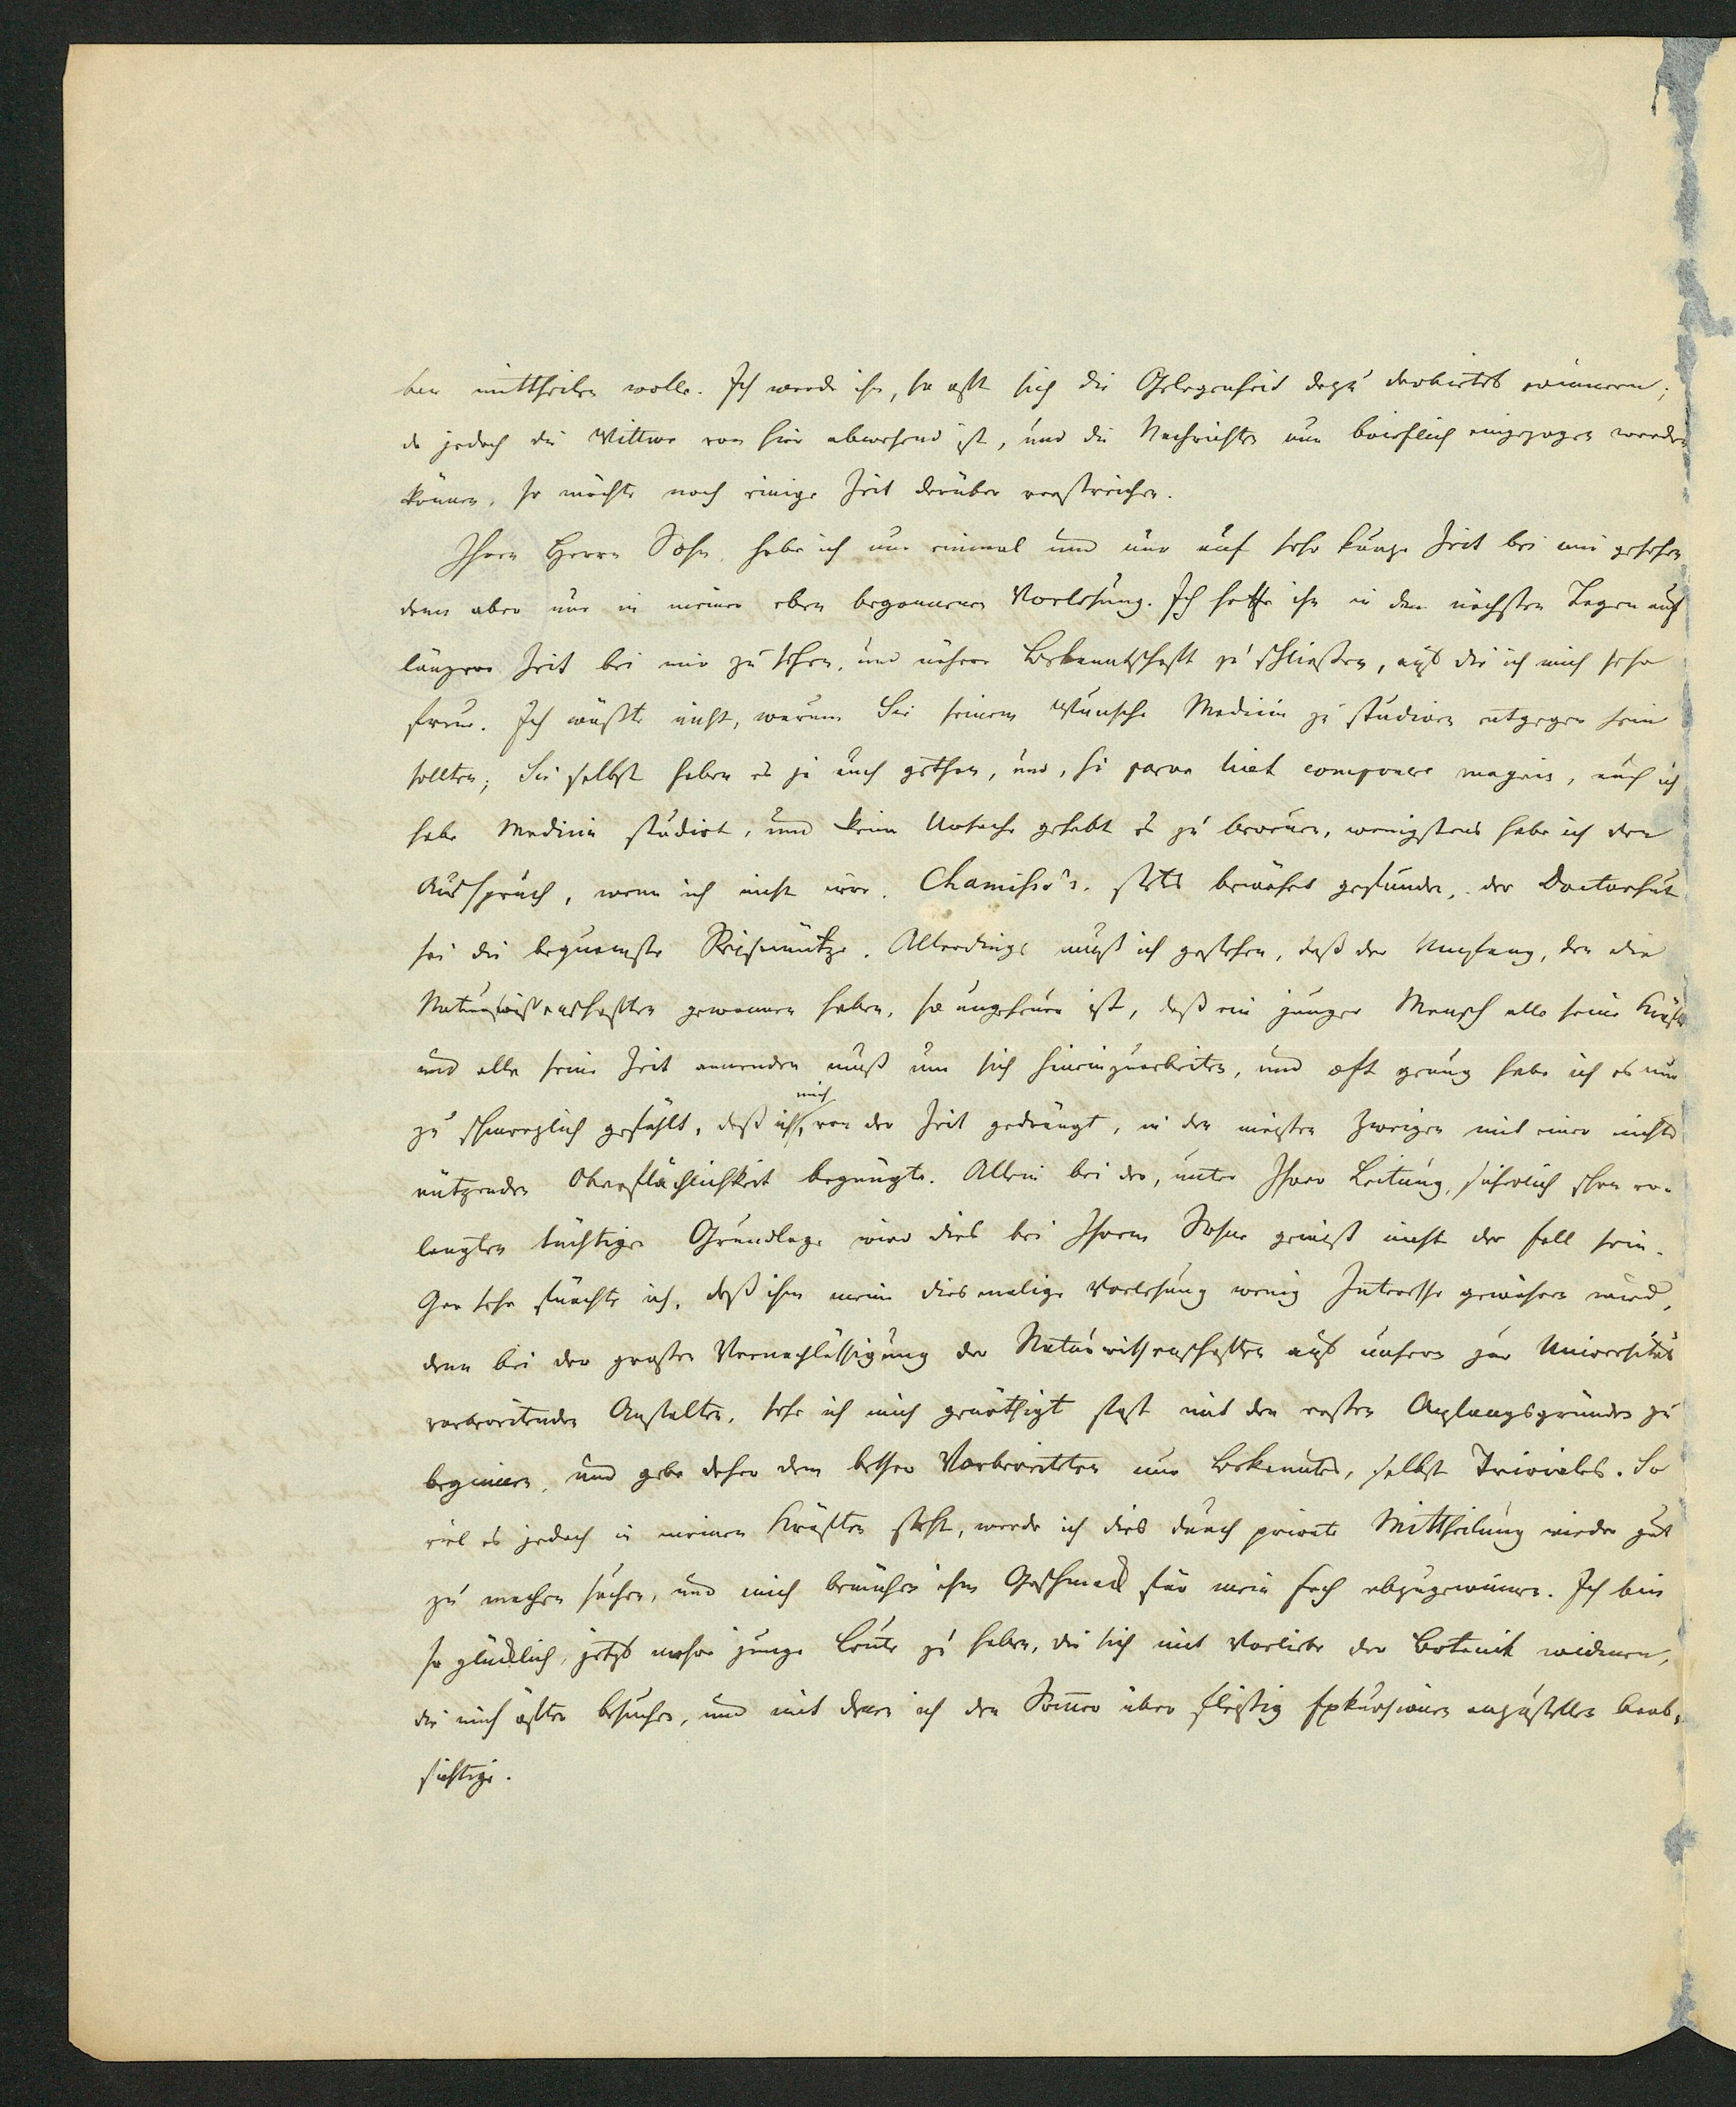 ben mittheilen wolle. Ich werde ihn, so oft sich die Gelegenheit dazu darbietet erinnern;
da jedoch die Wittwe von hier abwesend ist, und die Nachrichten nur brieflich eingezogen werden
können, so möchte noch einige Zeit darüber verstreichen.
Ihren Herrn Sohn habe ich nur einmal und nur auf sehr kurze Zeit bei mir gesehen
dann aber nur in meiner eben begonnenen Vorlesung. Ich hoffe ihn in den nächsten Tagen auf
längere Zeit bei mir zu sehen, und nähere Bekanntschaft zu schließen, auf die ich mich sehr
freue. Ich wüßte nicht, warum Sie seinem Wunsche Medicin zu studiren entgegen sein
sollten; Sie selbst haben es ja auch gethan, und, si parva licet componere magnis, auch ich
habe Medicin studirt, und keine Ursache gehabt es zu bereuen, wenigstens habe ich den
Ausspruch, wenn ich nicht irre, Chamisso's, stets bewährt gefunden, der Doctorhut
sei die bequemste Reisemütze. Allerdings muß ich gestehen, daß der Umfang, den die
Naturwissenschaften gewonnen haben, so ungeheuer ist, daß ein junger Mensch alle seine Kräfte
und alle seine Zeit anwenden muß um sich hineinzuarbeiten, und oft genug habe ich es nur
zu schmerzlich gefühlt, daß ich mich, von der Zeit gedrängt, in den meisten Zweigen mit einer nichts
nützenden Oberflächlichkeit begnügte. Allein bei der, unter Ihrer Leitung, sicherlich schon er-
langten tüchtigen Grundlage wird dies bei Ihrem Sohne gewiß nicht der Fall sein.
Gar sehr fürchte ich, daß ihm meine diesmalige Vorlesung wenig Interesse gewähren wird,
denn bei der großen Vernachlässigung der Naturwissenschaften auf unsern zur Universität
vorbereitenden Anstalten, sehe ich mich genöthigt fast mit den ersten Anfangsgründen zu
beginnen, und gebe daher dem besser Vorbereiteten nur Bekanntes, selbst Triviales. So
viel es jedoch in meinen Kräften steht, werde ich dies durch private Mittheilung wieder gut
zu machen suchen, und mich bemühen ihm Geschmack für mein Fach abzugewinnen. Ich bin
so glücklich, jetzt mehre junge Leute zu haben, die sich mit Vorliebe der Botanik widmen,
die mich öfter besuchen, und mit denen ich den Som̅er über fleißig Exkursionen anzustellen beab-
sichtige.